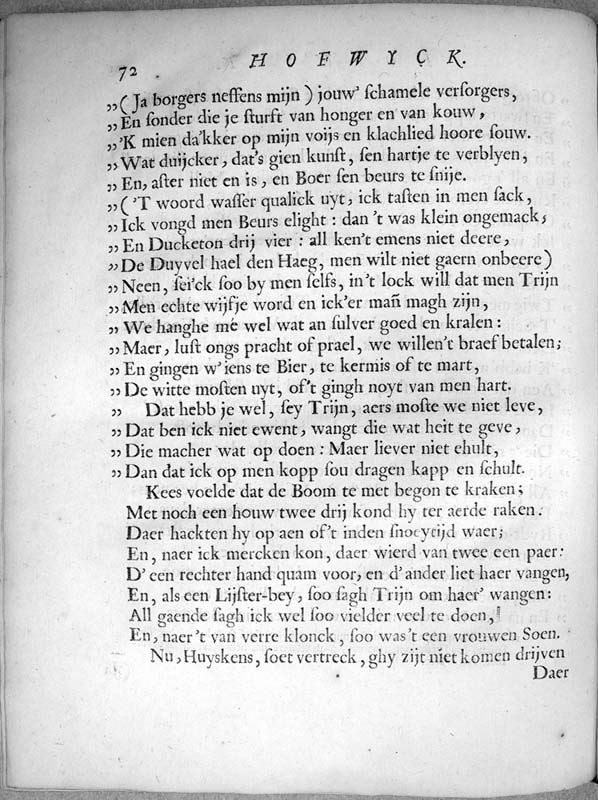 72 HOFWYCK.
„(Ja borgers neffens mijn) jouw' ſchamele verſorgers,
„En ſonder die je ſturft van honger en van kouw,
„'K mien da'kker op mijn voijs en klachlied hoore ſouw.
„Wat duijcker, dat's gien kunſt, ſen hartje te verblyen,
„En, aſter niet en is, en Boer ſen beurs te ſnije.
„('T woord waſſer qualick uyt, ick taſten in men ſack,
„Ick vongd men Beurs elight: dan 't was klein ongemack,
„En Ducketon drij vier: all ken't emens niet deere,
„De Duyvel hael den Haeg, men wilt niet gaern onbeere)
„Neen, ſei'ck ſoo by men ſelfs, in't lock will dat men Trijn
„Men echte wijfje word en ick'er mañ magh zijn,
„We hanghe me wel wat an ſulver goed en kralen:
„Maer, luſt ongs pracht of prael, we willen't braef betalen;
„En gingen w'iens te Bier, te kermis of te mart,
„De witte moſten uyt, of't gingh noyt van men hart.
„ Dat hebb je wel, ſey Trijn, aers moſte we niet leve,
„Dat ben ick niet ewent, wangt die wat heit te geve,
„Die macher wat op doen: Maer liever niet ehult,
„Dan dat ick op men kopp ſou dragen kapp en ſchult.
Kees voelde dat de Boom te met begon te kraken;
Met noch een houw twee drij kond hy ter aerde raken:
Daer hackten hy op aen of't inden ſnoeytijd waer;
En, naer ick mercken kon, daer wierd van twee een paer:
D'een rechter hand quam voor, en d'ander liet haer vangen,
En, als een Lijſter-bey, ſoo ſagh Trijn om haer' wangen:
All gaende ſagh ick wel ſoo vielder veel te doen,
En, naer't van verre klonck, ſoo was't een vrouwen Soen.
Nu, Huyskens, ſoet vertreck, ghy zijt niet komen drijven
Daer